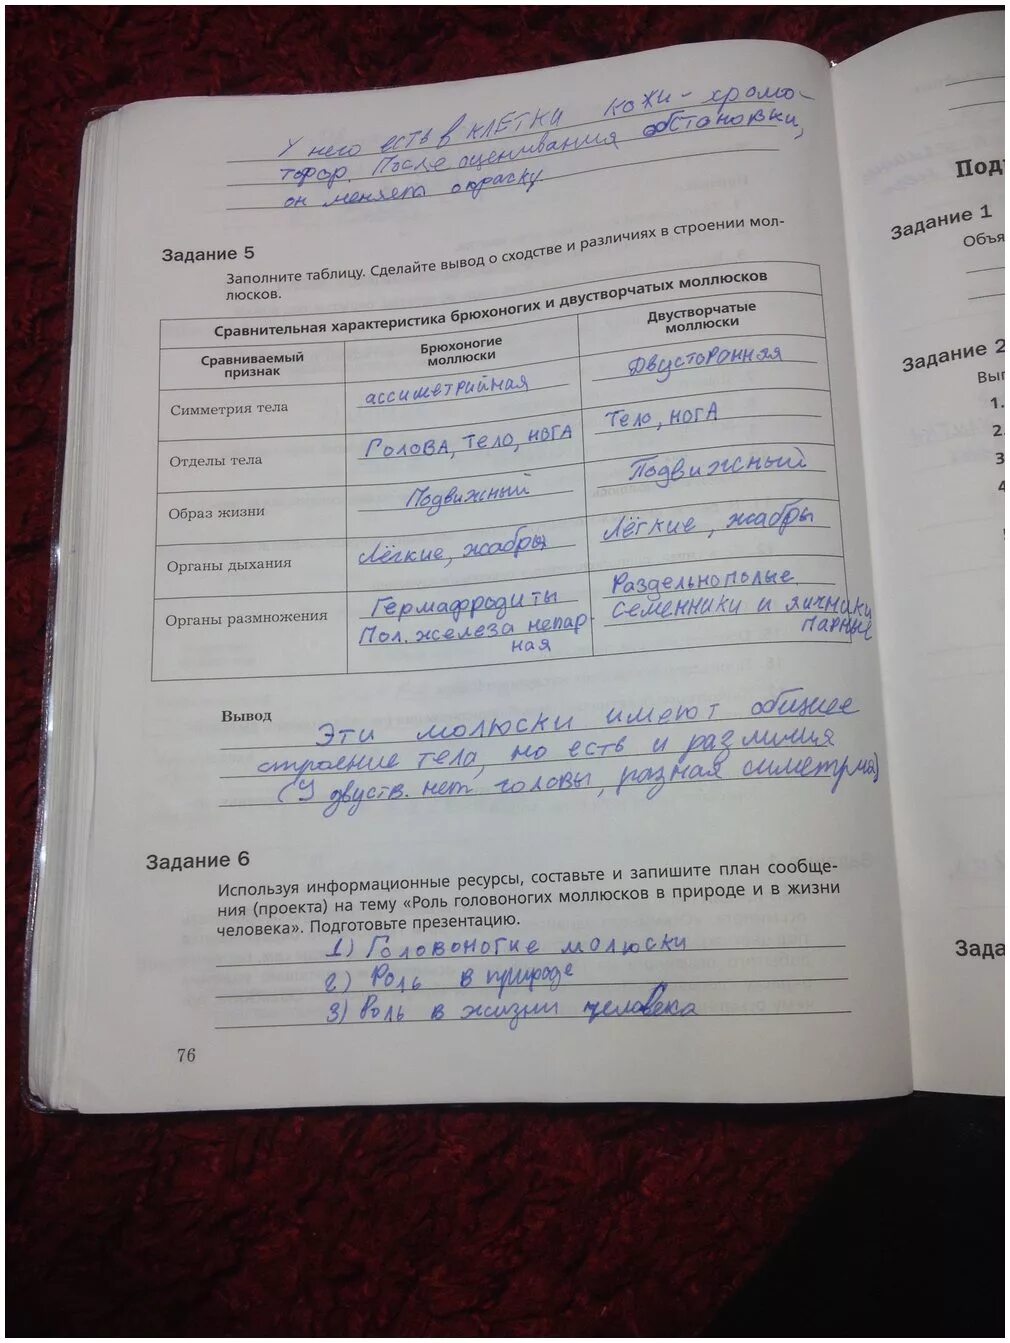 У него есть в клетки кожи - хромо-
тофор. После оценивания обстановки,
он менять окраску
Задание 5
Заполните таблицу. Сделайте вывод о сходстве и различиях в строении мол-
люсков.
Сравнительная характеристика брюхоногих и двустворчатых моллюсков
Сравниваемый признак
Брюхоногие моллюски
Двустворчатые моллюски
Симметрия тела
ассиметрийная
Двусторонняя
Отделы тела
Голова, тело, нога
Тело, нога
Образ жизни
Подвижный
Подвижный
Органы дыхания
Лёгкие, жабры
Лёгкие, жабры
Органы размножения
Гермафродиты
Пол. железа непар-
ная
Раздельнополые
Семенники и яичники
парные
Вывод
Эти молюски имеют общее
строение тела, но есть и различия
(У двуств. нет головы, разная симетрма)
Задание 6
Используя информационные ресурсы, составьте и запишите план сообще-
ния (проекта) на тему «Роль головоногих моллюсков в природе и в жизни
человека». Подготовьте презентацию.
1) Головоногие молюски
2) Роль в природе
3) Роль в жизни человека
76
Под
Задание 1
Объя
Задание 2
Выг
1.
2.
3
4
Зада